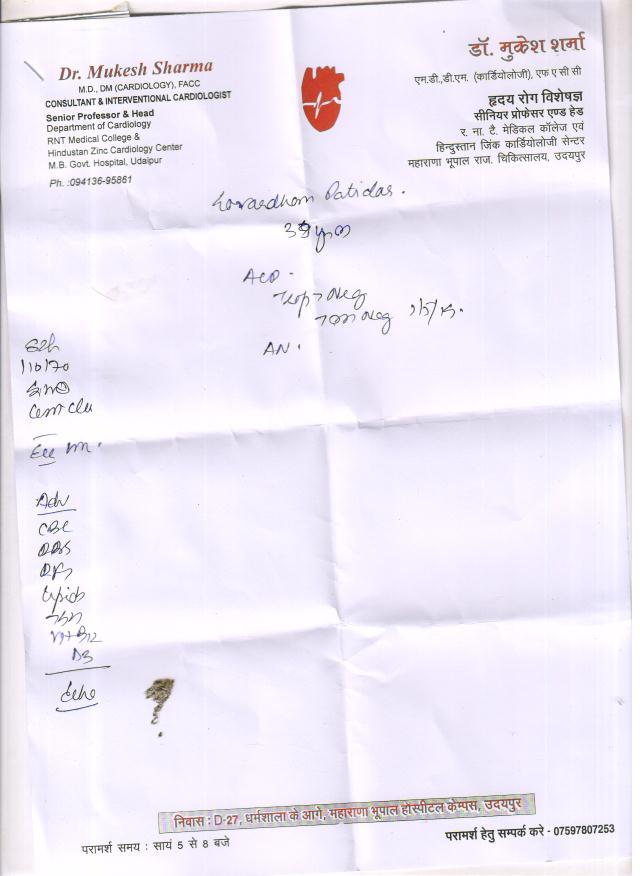 Dr. Mukesh Sharma
M.D., DM (CARDIOLOGY), FACC
CONSULTANT & INTERVENTIONAL CARDIOLOGIST
Senior Professor & Head
Department of Cardiology
RNT Medical College &
Hindustan Zinc Cardiology Center
M.B. Govt. Hospital, Udaipur
Ph. :094136-95861
डॉ. मुकेश शर्मा
एम.डी.,डी.एम. (कार्डियोलोजी), एफ ए सी सी
हृदय रोग विशेषज्ञ
सीनियर प्रोफेसर एण्ड हेड
र. ना. टै. मेडिकल कॉलेज एवं
हिन्दुस्तान जिंक कार्डियोलोजी सेन्टर
महाराणा भूपाल राज. चिकित्सालय, उदयपुर
Patidar.
Neg
Neg
110/70
Adv
CBC
Lipid
Vit B12
D3
Echo
निवास : D-27, धर्मशाला के आगे, महाराणा भूपाल हॉस्पीटल केम्पस, उदयपुर
परामर्श समय : सायं 5 से 8 बजे
परामर्श हेतु सम्पर्क करे - 07597807253